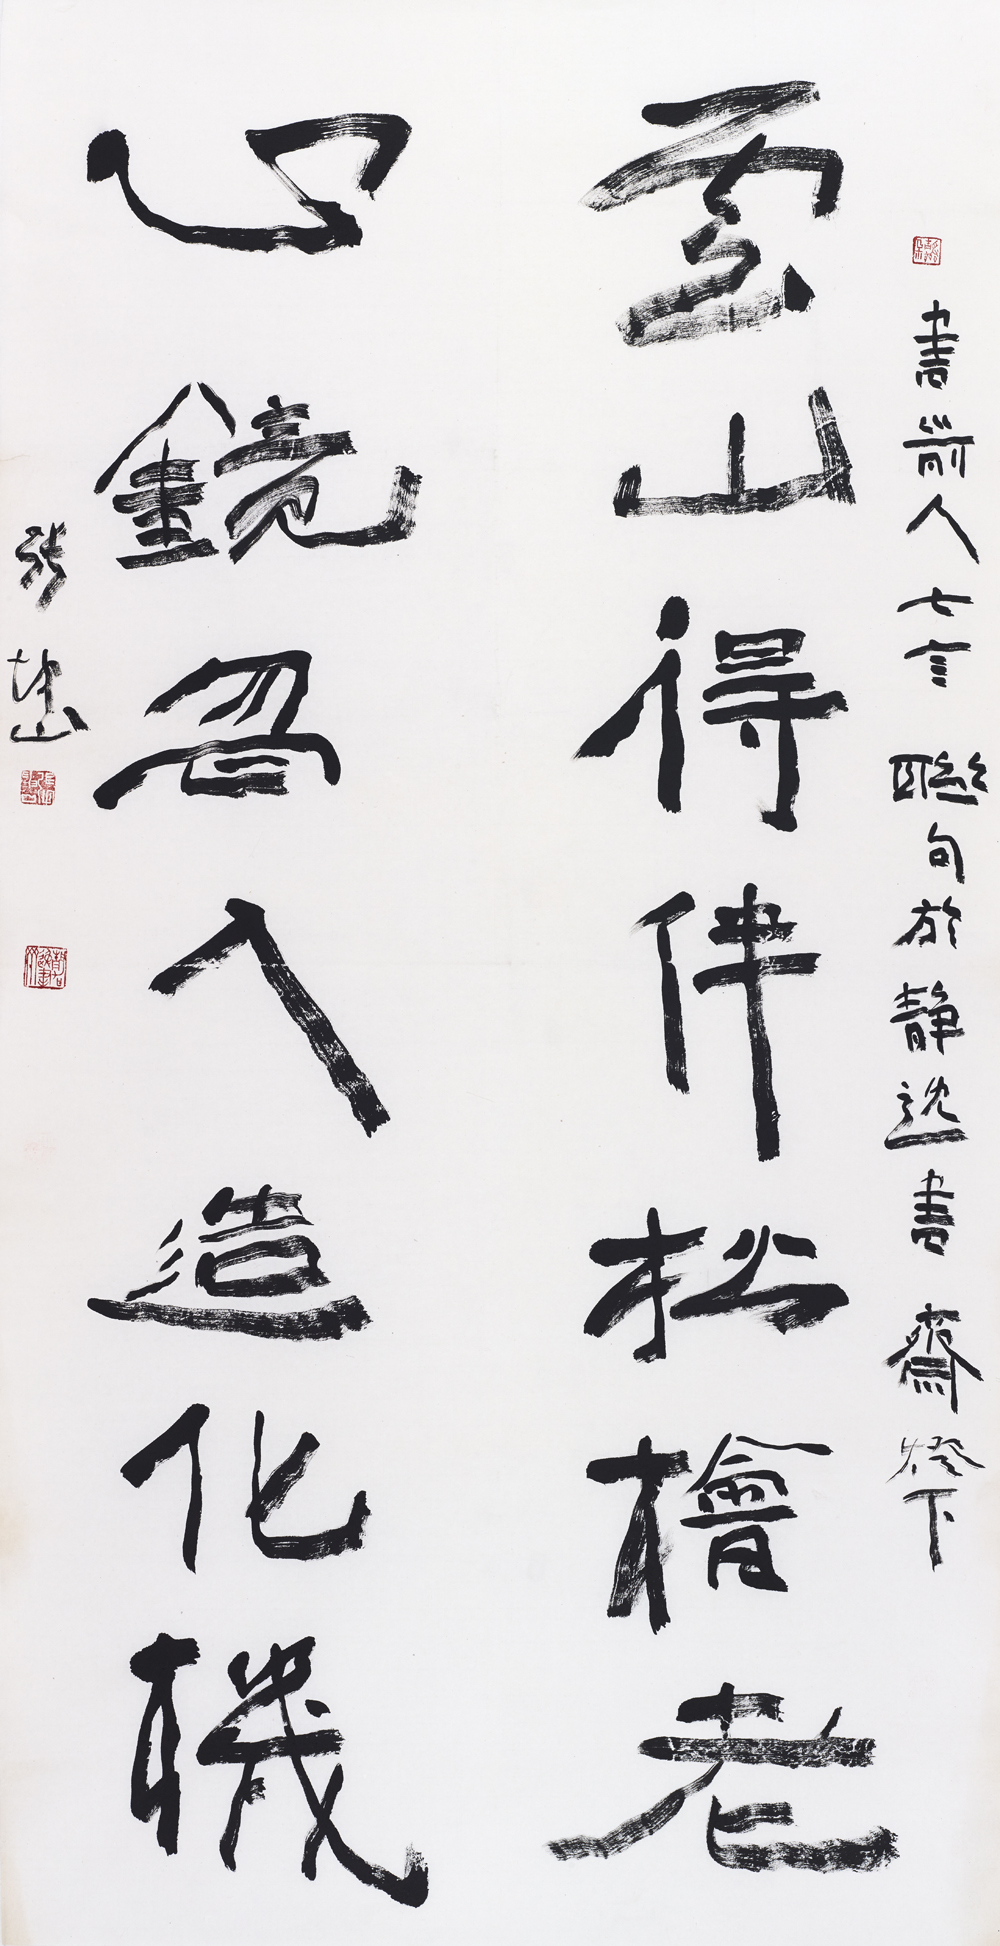 書前人七言聯句於靜書齋燈下
雲山得伴松檜老
心鏡忽入造化機
張坤山